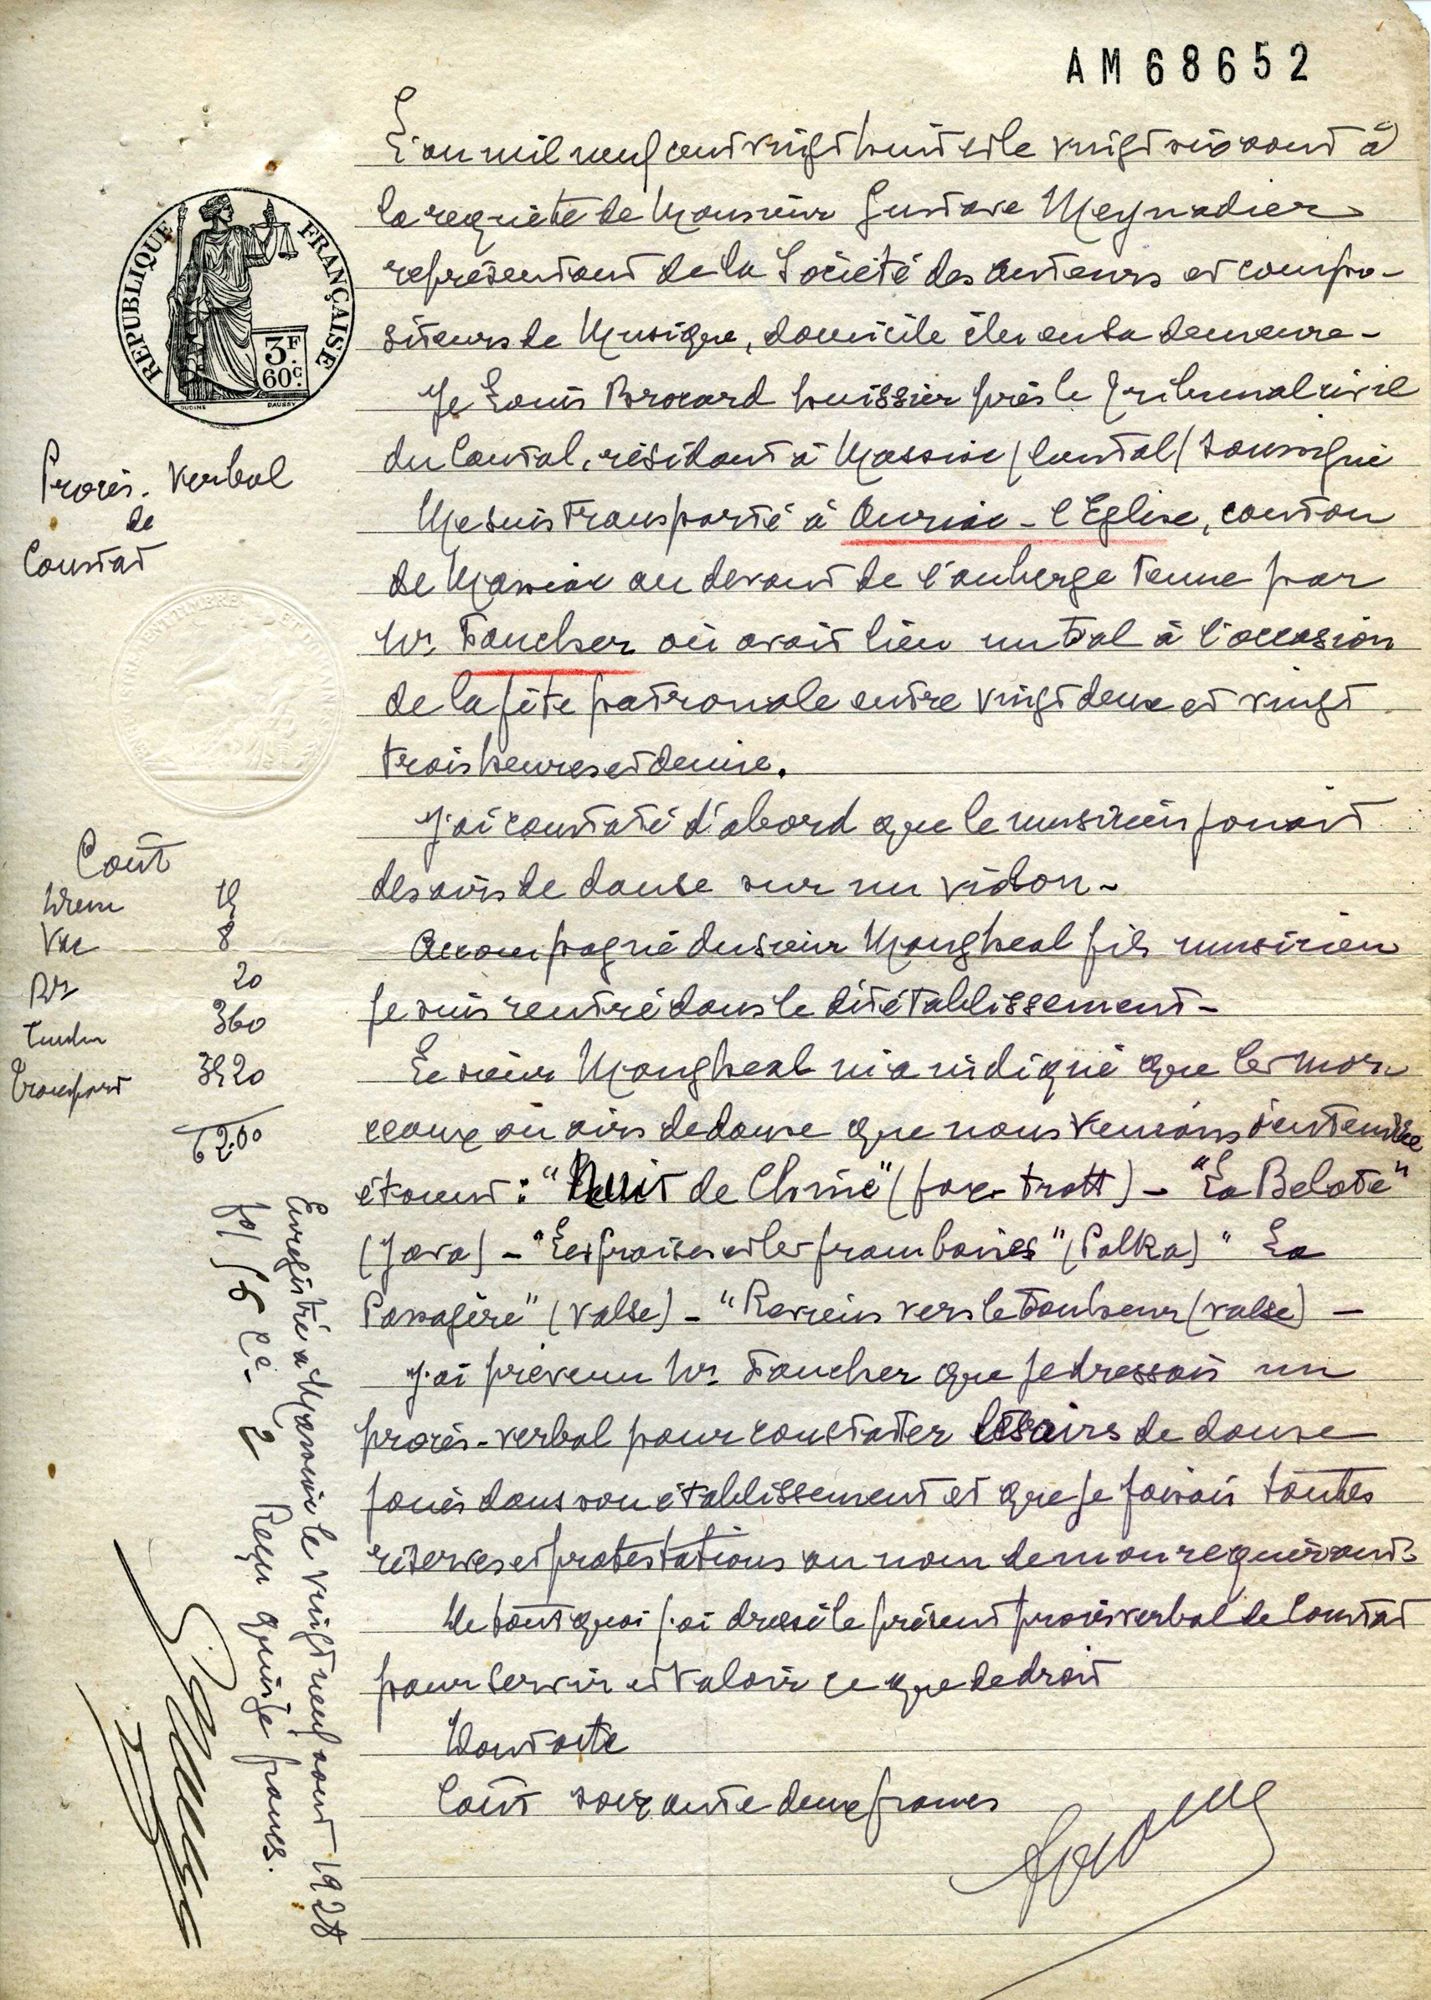 AM68652
L'an mil neuf cent vingt huit et le vingt six août à
la requête de Monsieur Gustave Meynadier
représentant de la Société des Auteurs et compo-
siteurs de Musique, domicile élu en sa demeure -
Je Louis Brocard huissier près le Tribunal civil
du Cantal, résidant à Massiac (Cantal) soussigné
Me suis transporté à Auriac-l'Eglise, canton
de Massiac au devant de l'auberge tenue par
Mr. Foucher où avait lieu un bal à l'occasion
de la fête patronale entre vingt deux et vingt
trois heures et demie.
J'ai constaté d'abord que le musicien jouait
des airs de danse sur un violon -
Accompagné du sieur Mongheal fils musicien
je suis rentré dans le dit établissement -
Le sieur Mongheal m'a indiqué que les mor
ceaux ou airs de danse que nous venions d'entendre
étaient : "Nuit de Chine" (fox-trott) - "La Belote"
(Java) - "Les fraises et les framboises" (Polka) " La
Passagère" (valse) - "Reviens vers le bonheur (valse) -
J'ai prévenu Mr. Foucher que je dressais un
procès-verbal pour constater les airs de danse
joués dans son établissement et que je faisais toutes
réserves et protestations au nom de mon requérant.
De tout quoi j'ai dressé le présent procès verbal de Constat
pour servir et valoir ce que de droit
Dont acte
Coût soixante deux francs
REPUBLIQUE FRANÇAISE
3F.
60c.
OUDINÉ DAUSSY
Procès-Verbal
de
Constat
Coût
Vac 8
20
360
Transport
62.00
Enregistré à Massiac le vingt neuf août 1928
Reçu quinze francs.